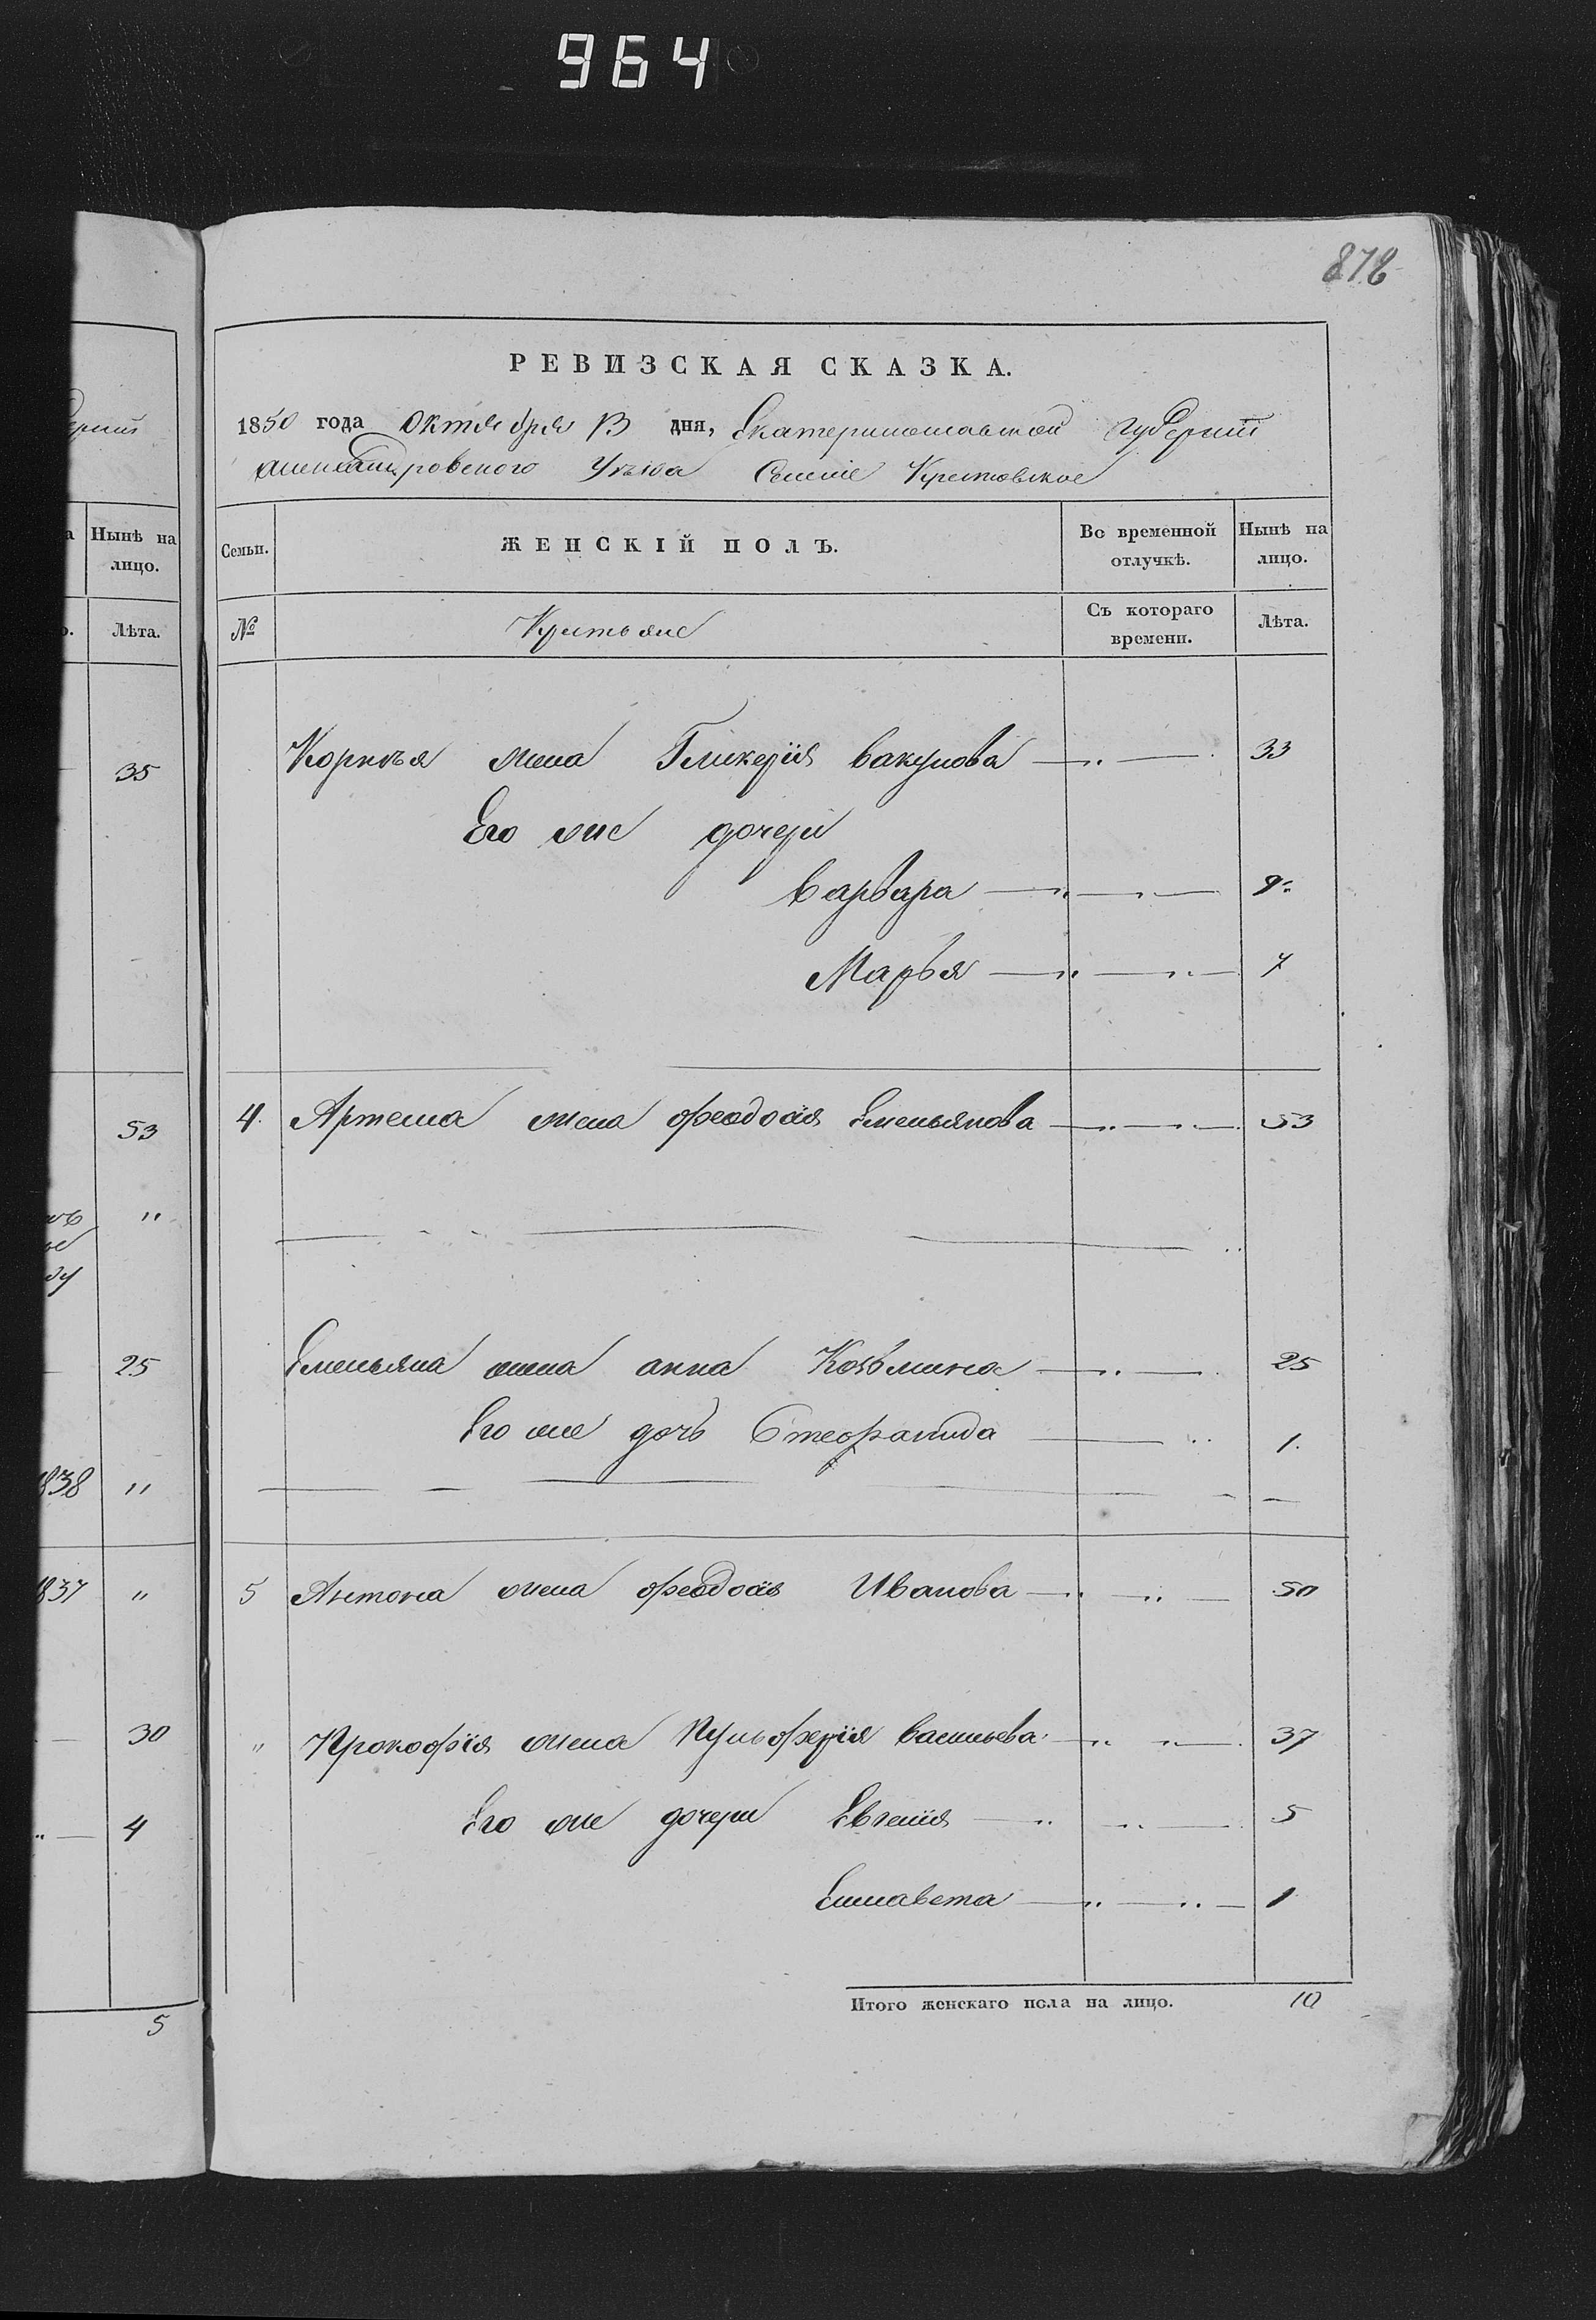 964
878
РЕВИЗСКАЯ СКАЗКА.
1850 года Октября 13 дня, Екатеринославской губерніи
александровского Уѣзда Селеніе Крестовское
Семьи.
ЖЕНСКІЙ ПОЛЪ.
Во временной отлучкѣ.
Нынѣ на лицо.
№
Крестьяне
Съ котораго времени.
Лѣта.
Корнѣя жена Гликерія вакулова — „ — 33
Его же дочери
варвара — „ — „ — 9
Марья — „ — „ — 7
4. Артема жена феодосія Емельянова — „ — „ — 53
Емельяна жена анна Козьмина — „ — 25
Его же дочь Стефанида — „ 1.
5 Антона жена феодосія Иванова — „ — „ — 50
„ Прокофія жена Пульферія васильева — „ — „ — 37
Его же дочери Евгенія — „ — „ — 5
Елисавета — „ — „ — 1
Итого женскаго пола на лицо. 10
Нынѣ на
лицо.
Лѣта.
35
53
„
25
1838 „
1837 „
30
„ — 4
5